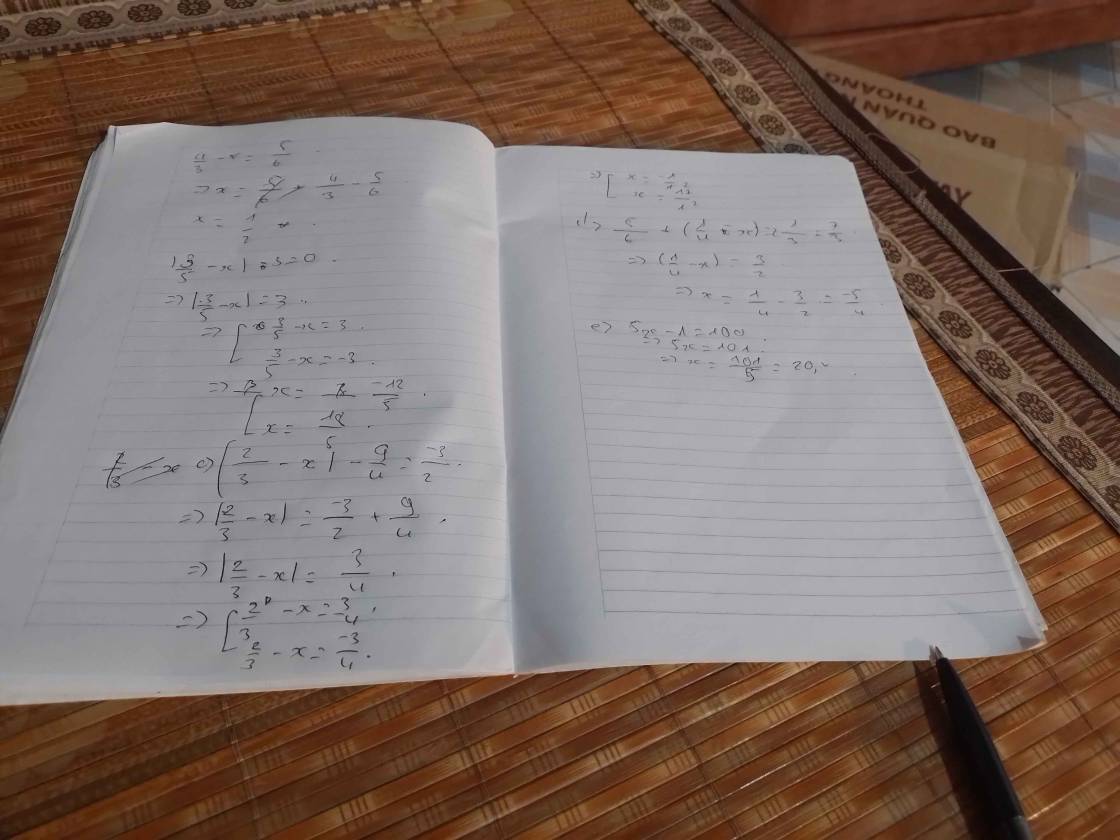 4/3 - x = 5/6 .
=> x = 4/3 - 5/6
x = 1/2 .
|3/5 - x| - 3 = 0 .
=> |3/5 - x| = 3 .
=> [ 3/5 - x = 3 .
3/5 - x = -3 .
=> x = -12/5 .
[ x = 18/5 .
c) |2/3 - x| - 9/4 = -3/2 .
=> |2/3 - x| = -3/2 + 9/4 .
=> |2/3 - x| = 3/4 .
=> [ 2/3 - x = 3/4 .
2/3 - x = -3/4 .
=> [ x = -1/12
x = 17/12
d) 5/6 + (1/4 - x) = 7/3
=> (1/4 - x) = 3/2
=> x = 1/4 - 3/2 = -5/4
e) 5x - 1 = 100
=> 5x = 101 .
=> x = 101/5 =
BAO QUAN
THOANG